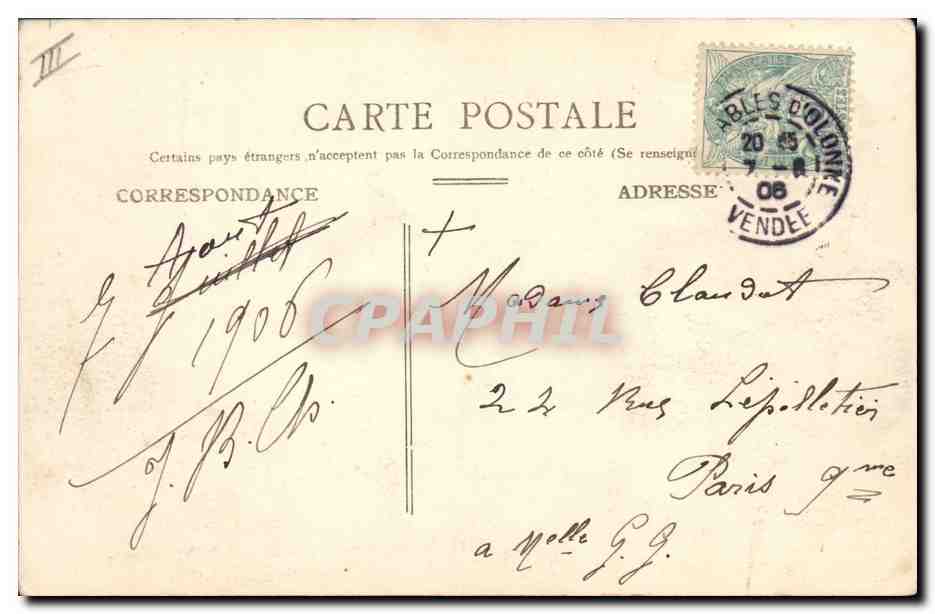 III
CARTE POSTALE
Certains pays étrangers n'acceptent pas la Correspondance de ce côté (Se renseign
CORRESPONDANCE
ADRESSE
ABLES D'OLONNE
20 45
7 - 8
06
VENDÉE
Aout
7 Juillet
1906
J. B. Ch.
+
Madame Claudat
22 Rue Lepelletier
Paris 9me
a Melle G. G.
CPAPHIL